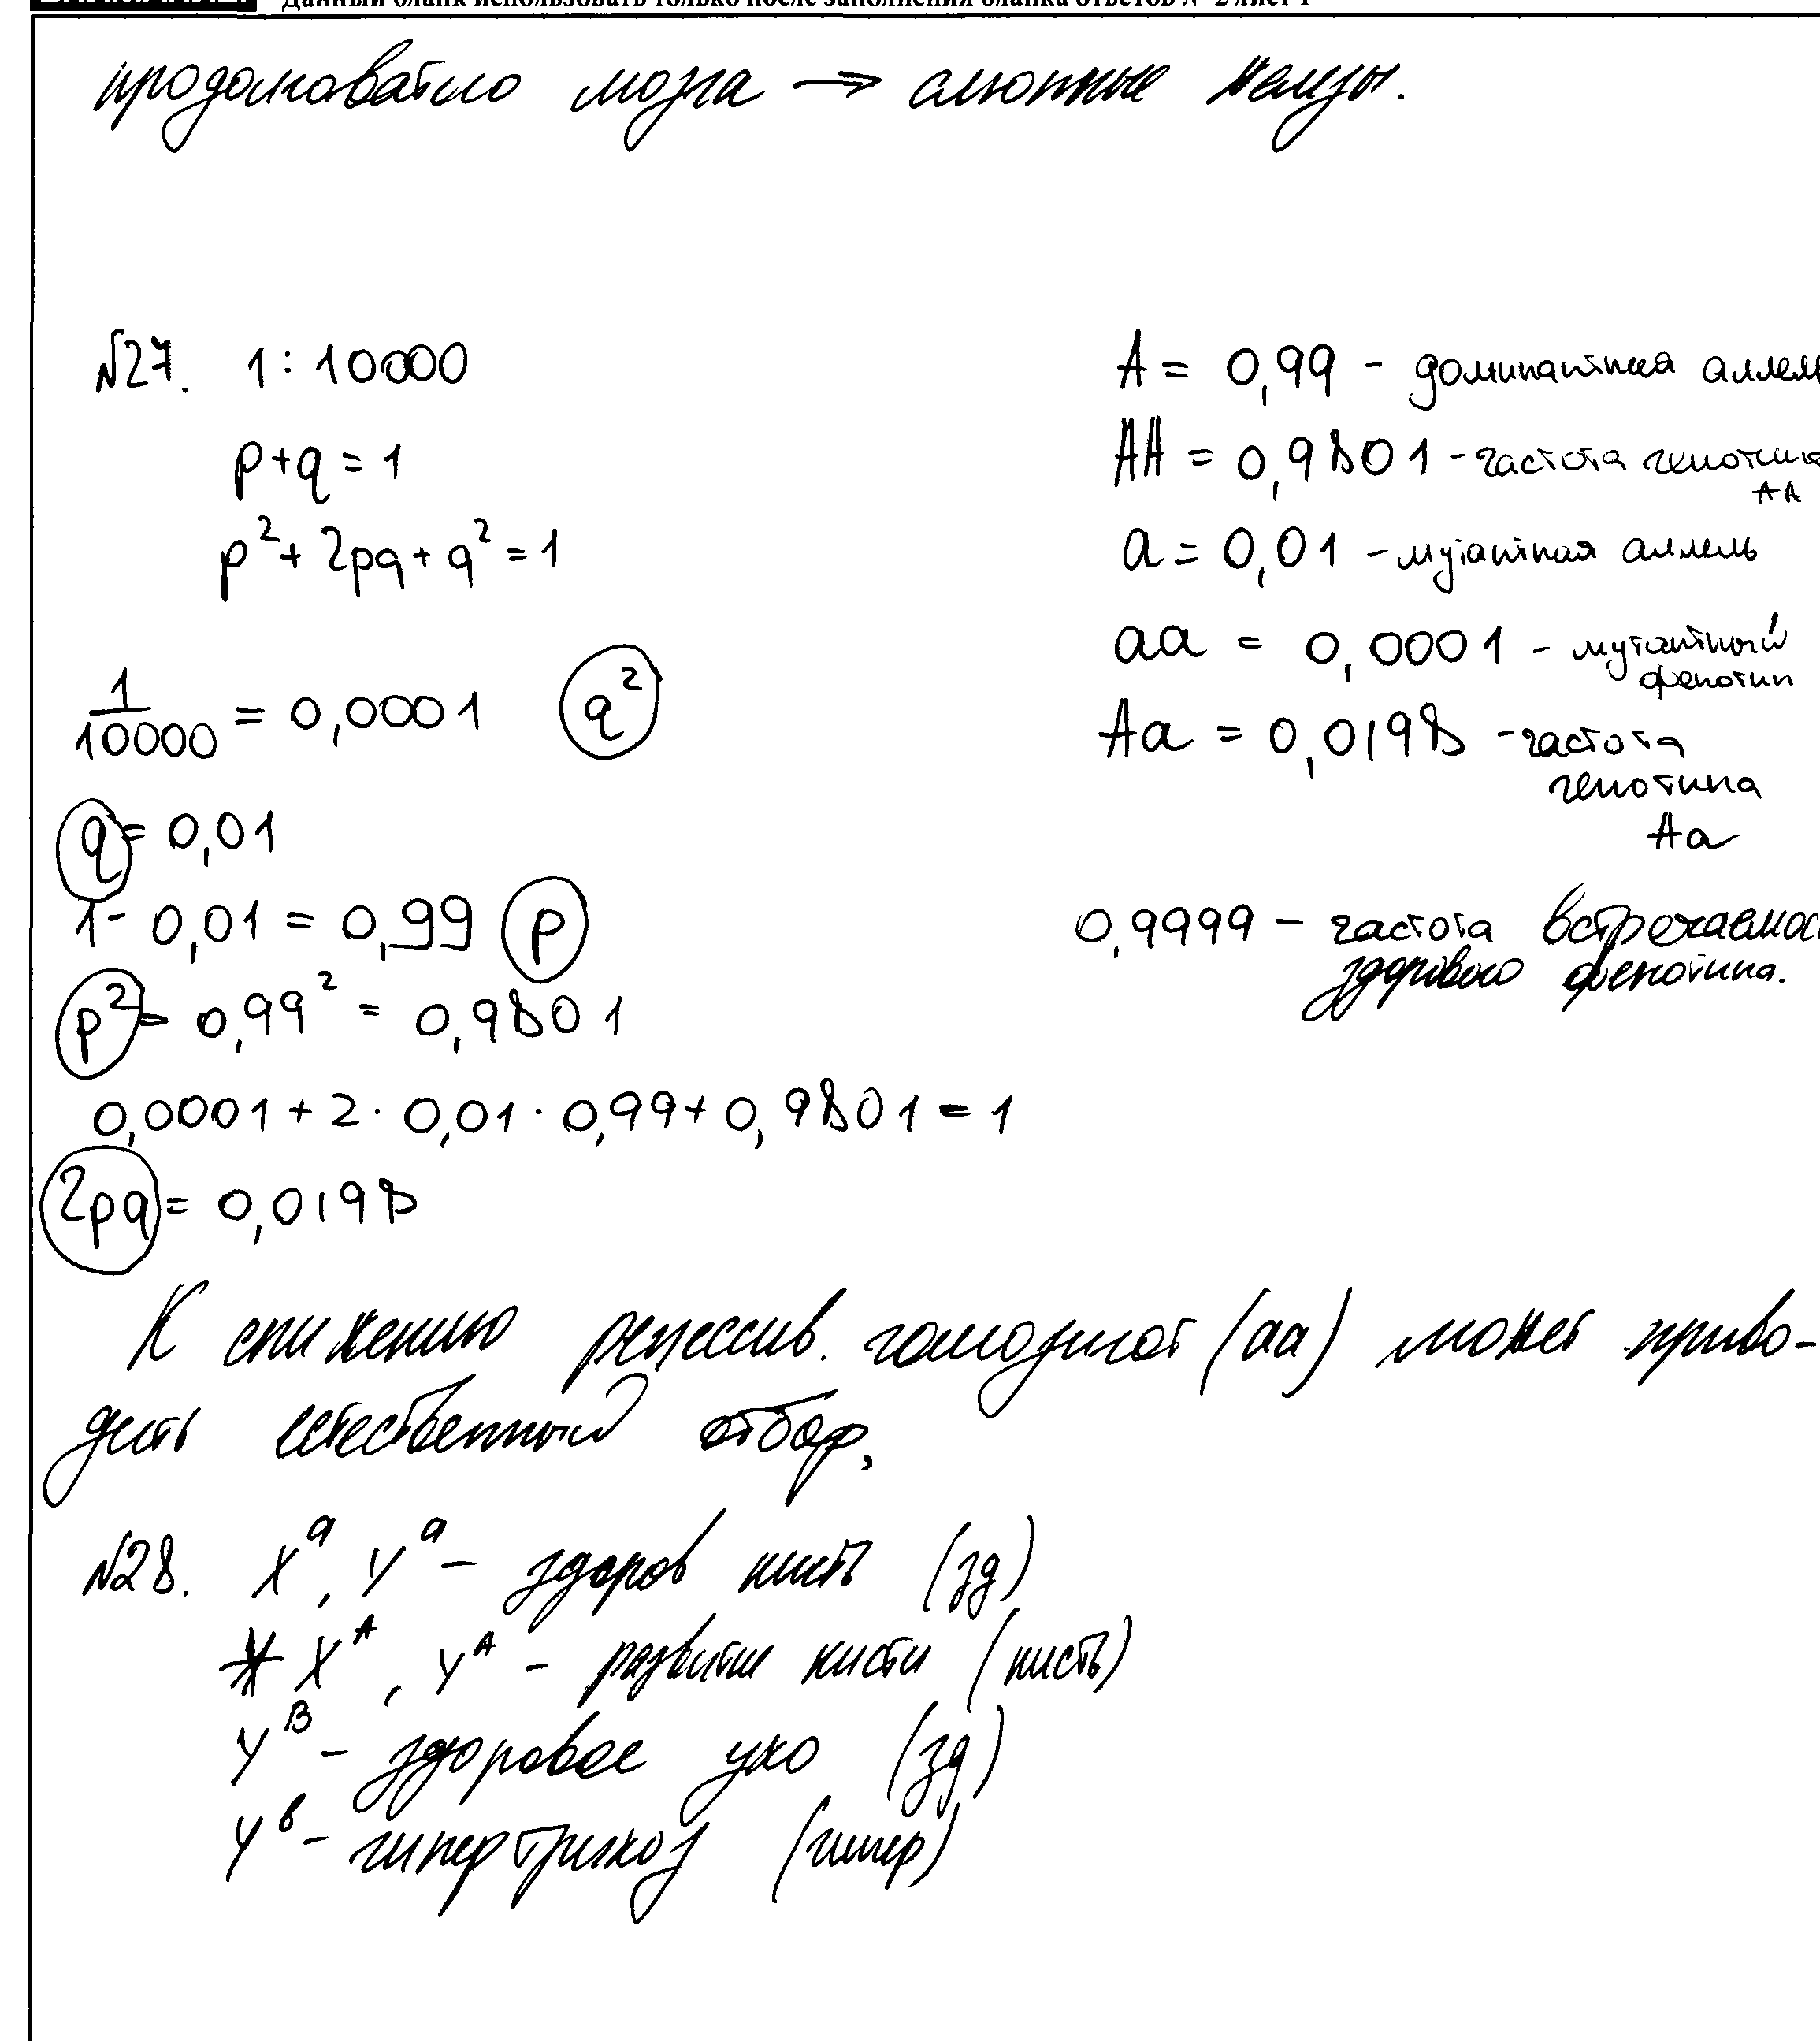 Данный бланк использовать только после заполнения бланка ответов № 2 лист 1
продолговатого мозга → слюнные железы.
№27. 1 : 10000
p+q = 1
p² + 2pq + q² = 1
1/10000 = 0,0001 q²
q = 0,01
1 - 0,01 = 0,99 p
p² = 0,99² = 0,9801
0,0001 + 2 · 0,01 · 0,99 + 0,9801 = 1
2pq = 0,0198
A = 0,99 - доминантная аллель
AA = 0,9801 - частота генотипа
AA
a = 0,01 - мутантная аллель
aa = 0,0001 - мутантный
фенотип
Aa = 0,0198 - частота
генотипа
Aa
0,9999 - частота встречаемос
здорового фенотипа.
К снижению рецессив. гомозигот (aa) может приво-
дить естественный отбор.
№28. Xᵃ, Yᵃ - здоров кисть (зд)
Xᴬ, Yᴬ - развитие кисти (кисть)
Yᴮ - здоровое ухо (зд)
Yᵇ - гипертрихоз (гипер)